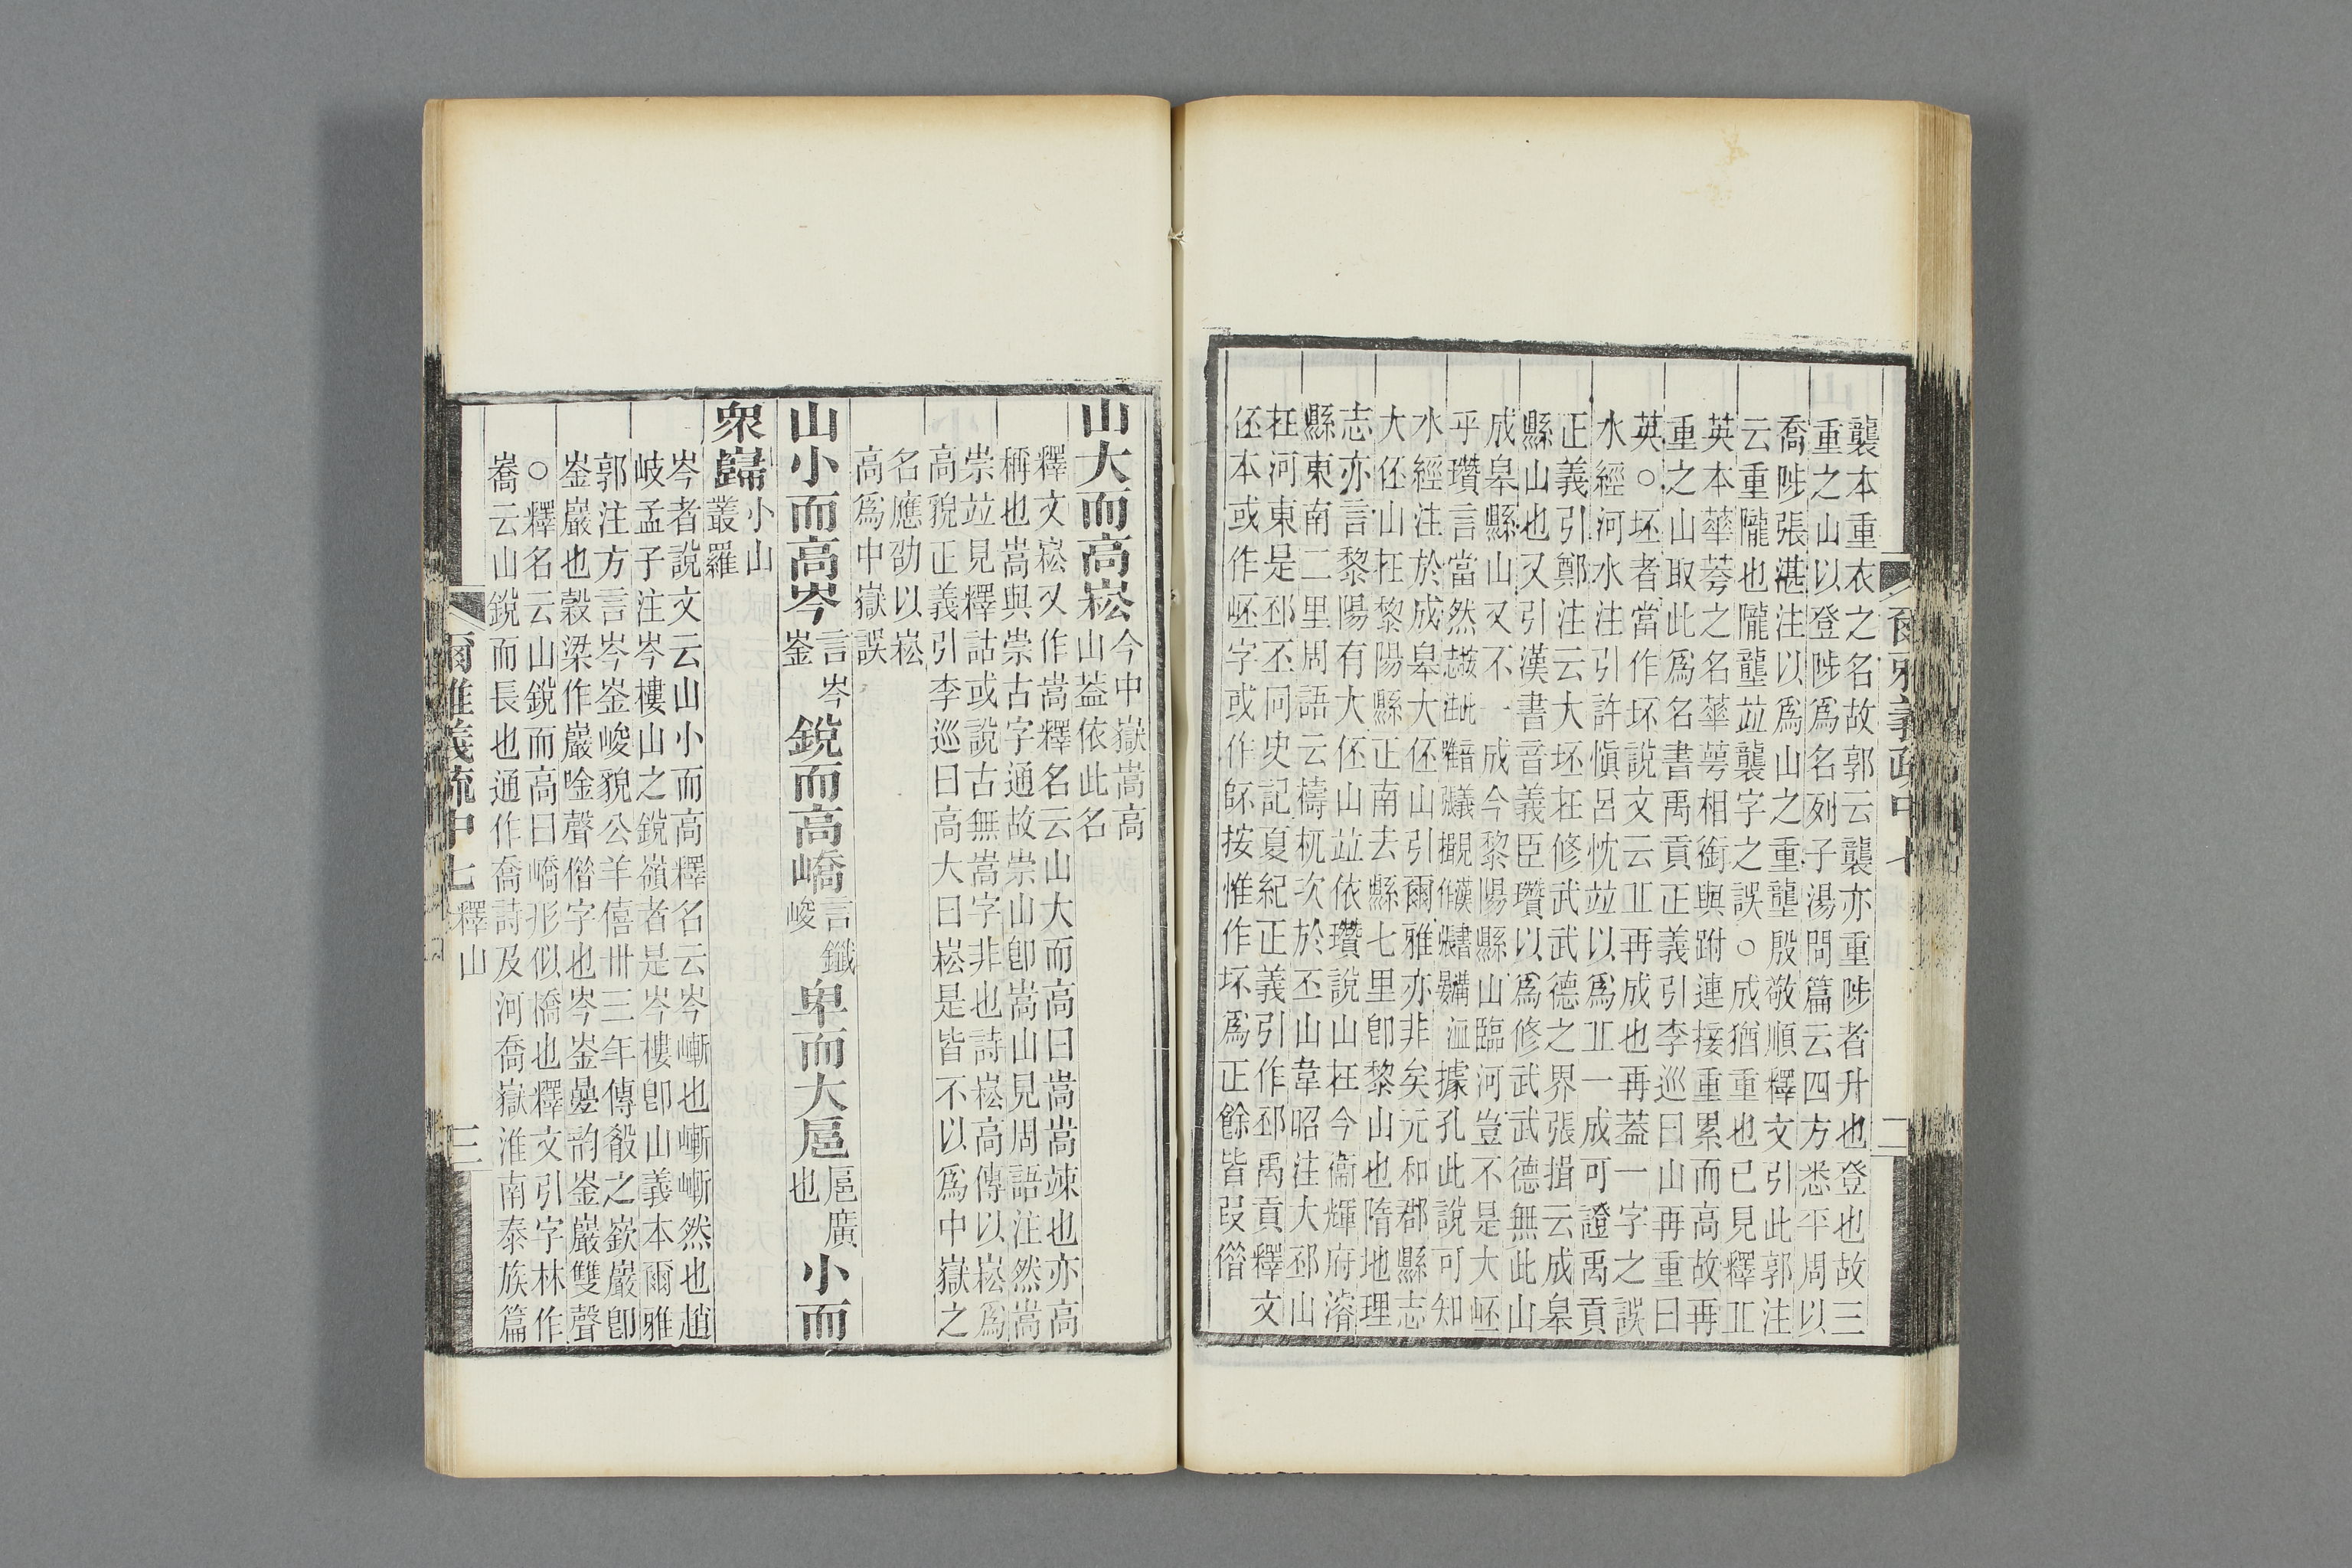 襲本重衣之名故郭云襲亦重陟者升也登也故三
重之山以登陟爲名列子湯問篇云四方悉平周以
喬陟張湛注以爲山之重壟殷敬順釋文引此郭注
云重隴也隴壟竝襲字之誤○成猶重也已見釋丘
英本華荂之名華萼相銜與跗連接重累而高故再
重之山取此爲名書禹貢正義引李巡曰山再重曰
英○坯者當作坏說文云丘再成也再蓋一字之誤
水經河水注引許愼呂忱竝以爲丘一成可證禹貢
正義引鄭注云大坯在修武武德之界張揖云成皋
縣山也又引漢書音義臣瓚以爲修武武德無此山
成皋縣山又不一成今黎陽縣山臨河豈不是大岯
乎瓚言當然據孔此說可知
水經注於成皋大伾山引爾雅亦非矣元和郡縣志
大伾山在黎陽縣正南去縣七里卽黎山也隋地理
志亦言黎陽有大伾山竝依瓚說山在今衞輝府濬
縣東南二里周語云檮杌次於丕山韋昭注大邳山
在河東是邳丕同史記夏紀正義引作邳禹貢釋文
伾本或作岯字或作䣙按惟作坏爲正餘皆叚偕
爾雅義疏中七
二
山大而高崧
今中嶽嵩高
山蓋依此名
釋文崧又作嵩釋名云山大而高曰嵩嵩竦也亦高
稱也嵩與崇古字通故崇山卽嵩山見周語注然嵩
崇竝見釋詁或說古無嵩字非也詩崧高傳以崧爲
高貌正義引李巡曰高大曰崧是皆不以爲中嶽之
名應劭以崧
高爲中嶽誤
山小而高岑
言岑
崟
銳而高嶠
言鑯
峻
卑而大扈
扈廣
也
小而
衆巋
小山
叢羅
岑者說文云山小而高釋名云岑嶃也嶃嶃然也趙
岐孟子注岑樓山之銳嶺者是岑樓卽山義本爾雅
郭注方言岑崟峻貌公羊僖卅三年傳殽之嶔巖卽
崟巖也穀梁作巖唫聲偕字也岑崟㬪韵崟巖雙聲
○釋名云山銳而高曰嶠形似橋也釋文引字林作
嶠云山銳而長也通作喬詩及河喬嶽淮南泰族篇
爾雅義疏中七
釋山
三